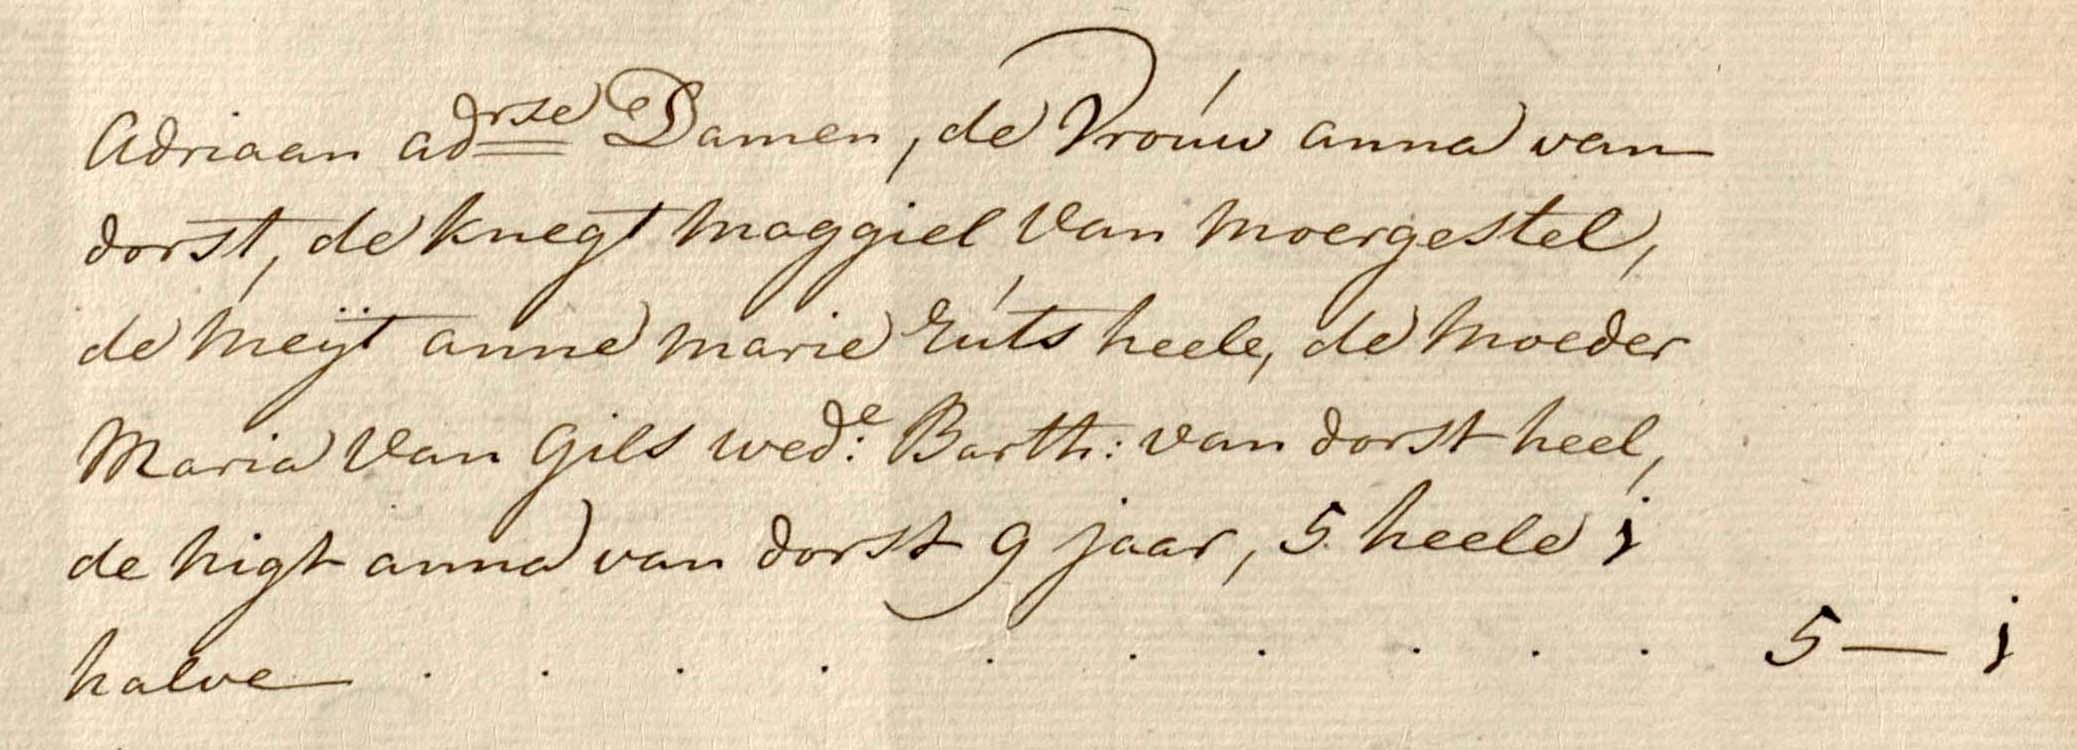 Adriaan adrse Damen, de Vrouw anna van
dorst, de knegt Maggiel Van Moergestel,
de Meijt anne Marie Ruts heele, de Moeder
Maria Van Gils wed:e Barth: van dorst heel,
de Nigt anna van dorst 9 jaar, 5 heele j
halve . . . . . . . . . 5 — j